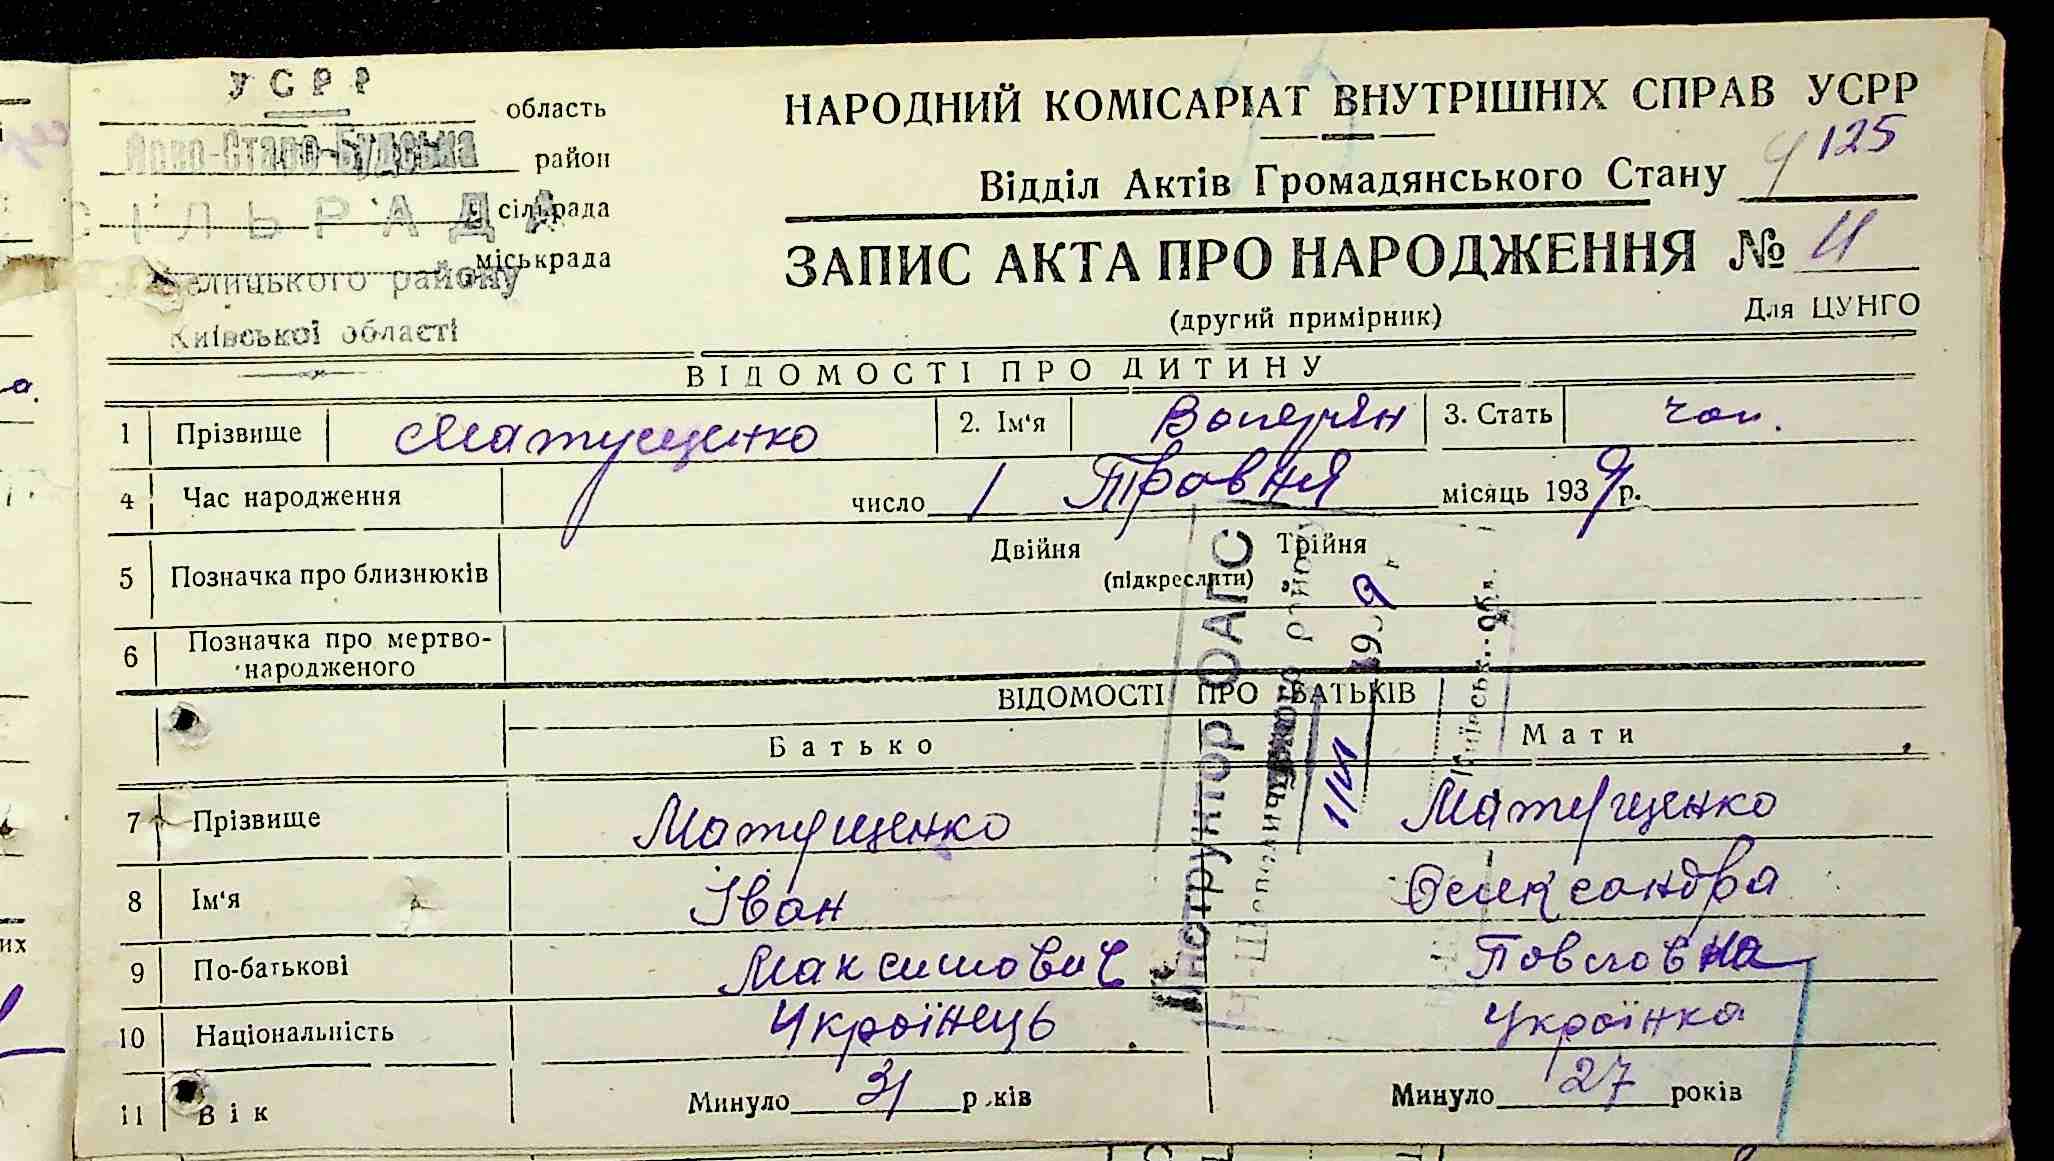 УСРР
область
НАРОДНИЙ КОМІСАРІАТ ВНУТРІШНІХ СПРАВ УСРР
Ново-Старо-Будська
район
125
Відділ Актів Громадянського Стану
СІЛЬРАДА
сільрада
міськрада
ЗАПИС АКТА ПРО НАРОДЖЕННЯ №
елицького району
(другий примірник)
Для ЦУНГО
Київської області
ВІДОМОСТІ ПРО ДИТИНУ
1 Прізвище Матущенко 2. Ім'я Валерян 3. Стать чол.
4 Час народження число 1 Травня місяць 1939 р.
5 Позначка про близнюків Двійня Трійня
(підкреслити)
6 Позначка про мертво-
народженого
ВІДОМОСТІ ПРО БАТЬКІВ
Батько Мати
7 Прізвище Матущенко Матущенко
8 Ім'я Іван Олександра
9 По-батькові Максимович Павловна
10 Національність Українець Українка
11 Вік Минуло 31 р.ків Минуло 27 років
Інструктор ОАГС
району
1939 г
Київськ.. обл.
их